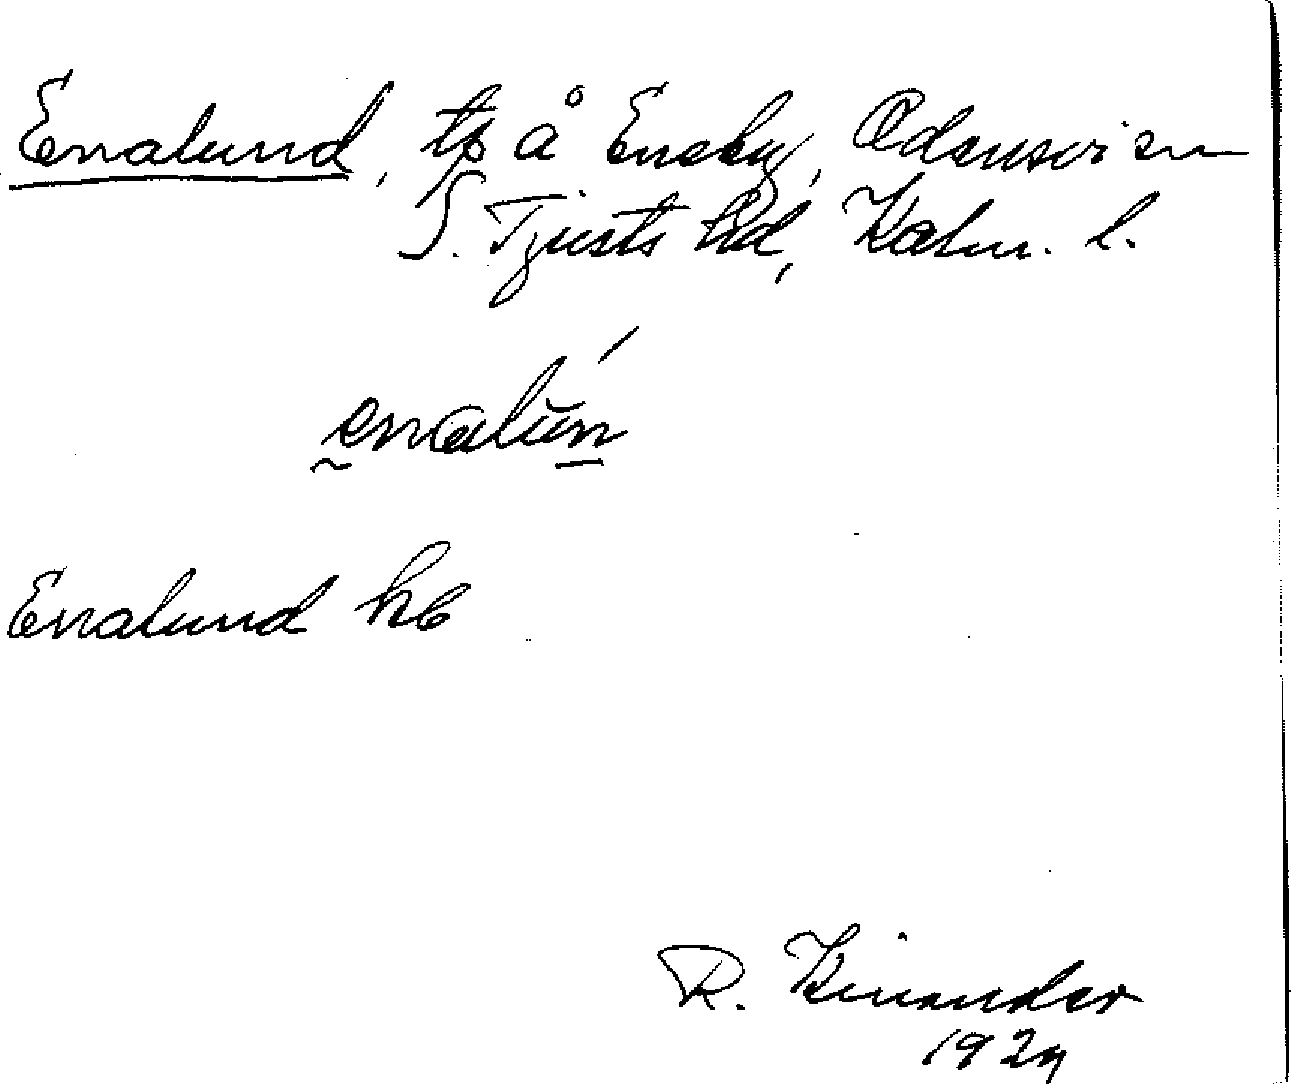 Enalund, tp å Eneby, Odensvi sn
S. Tjusts hd, Kalm. l.
enalun
Enalund hb
R. Kinander
1929